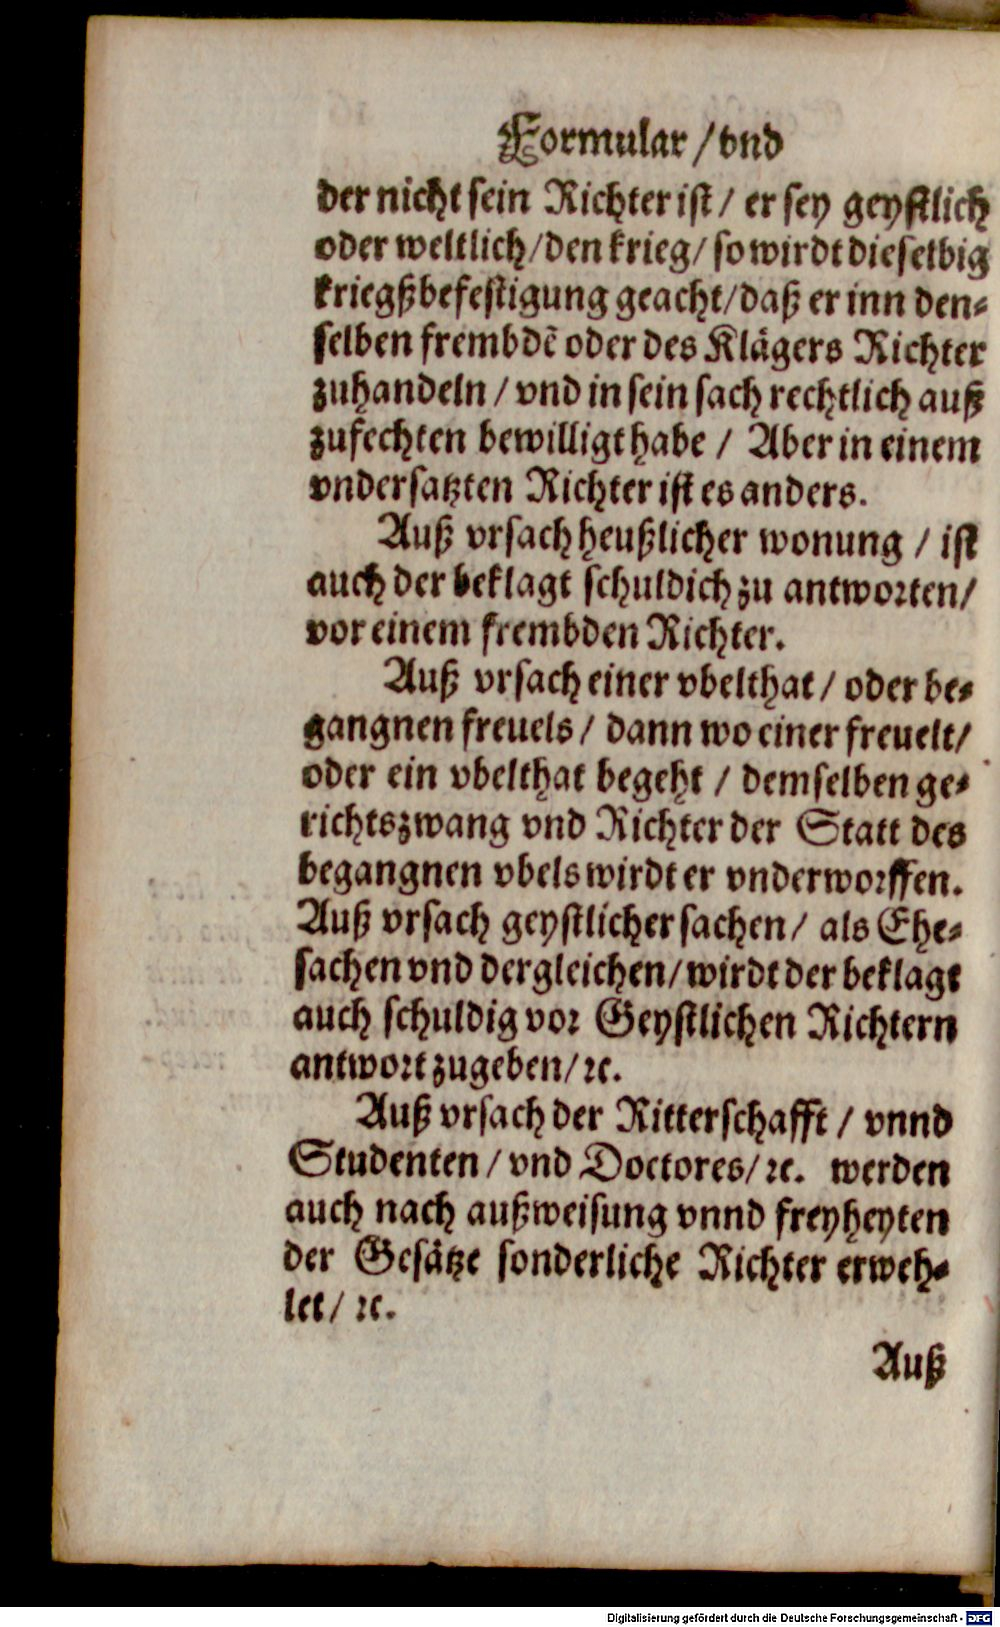 Formular / vnd
der nicht sein Richter ist / er sey geystlich
oder weltlich / den krieg / so wirdt dieselbig
kriegßbefestigung geacht / daß er inn den-
selben frembdẽ oder des Klägers Richter
zuhandeln / vnd in sein sach rechtlich auß
zufechten bewilligt habe / Aber in einem
vndersatzten Richter ist es anders.
Auß vrsach heußlicher wonung / ist
auch der beklagt schuldich zu antworten /
vor einem frembden Richter.
Auß vrsach einer vbelthat / oder be-
gangnen freuels / dann wo einer freuelt /
oder ein vbelthat begeht / demselben ge-
richtszwang vnd Richter der Statt des
begangnen vbels wirdt er vnderworffen.
Auß vrsach geystlicher sachen / als Ehe-
sachen vnd dergleichen / wirdt der beklagt
auch schuldig vor Geystlichen Richtern
antwort zugeben / ꝛc.
Auß vrsach der Ritterschafft / vnnd
Studenten / vnd Doctores / ꝛc. werden
auch nach außweisung vnnd freyheyten
der Gesätze sonderliche Richter erweh-
let / ꝛc.
Auß
Digitalisierung gefördert durch die Deutsche Forschungsgemeinschaft - DFG